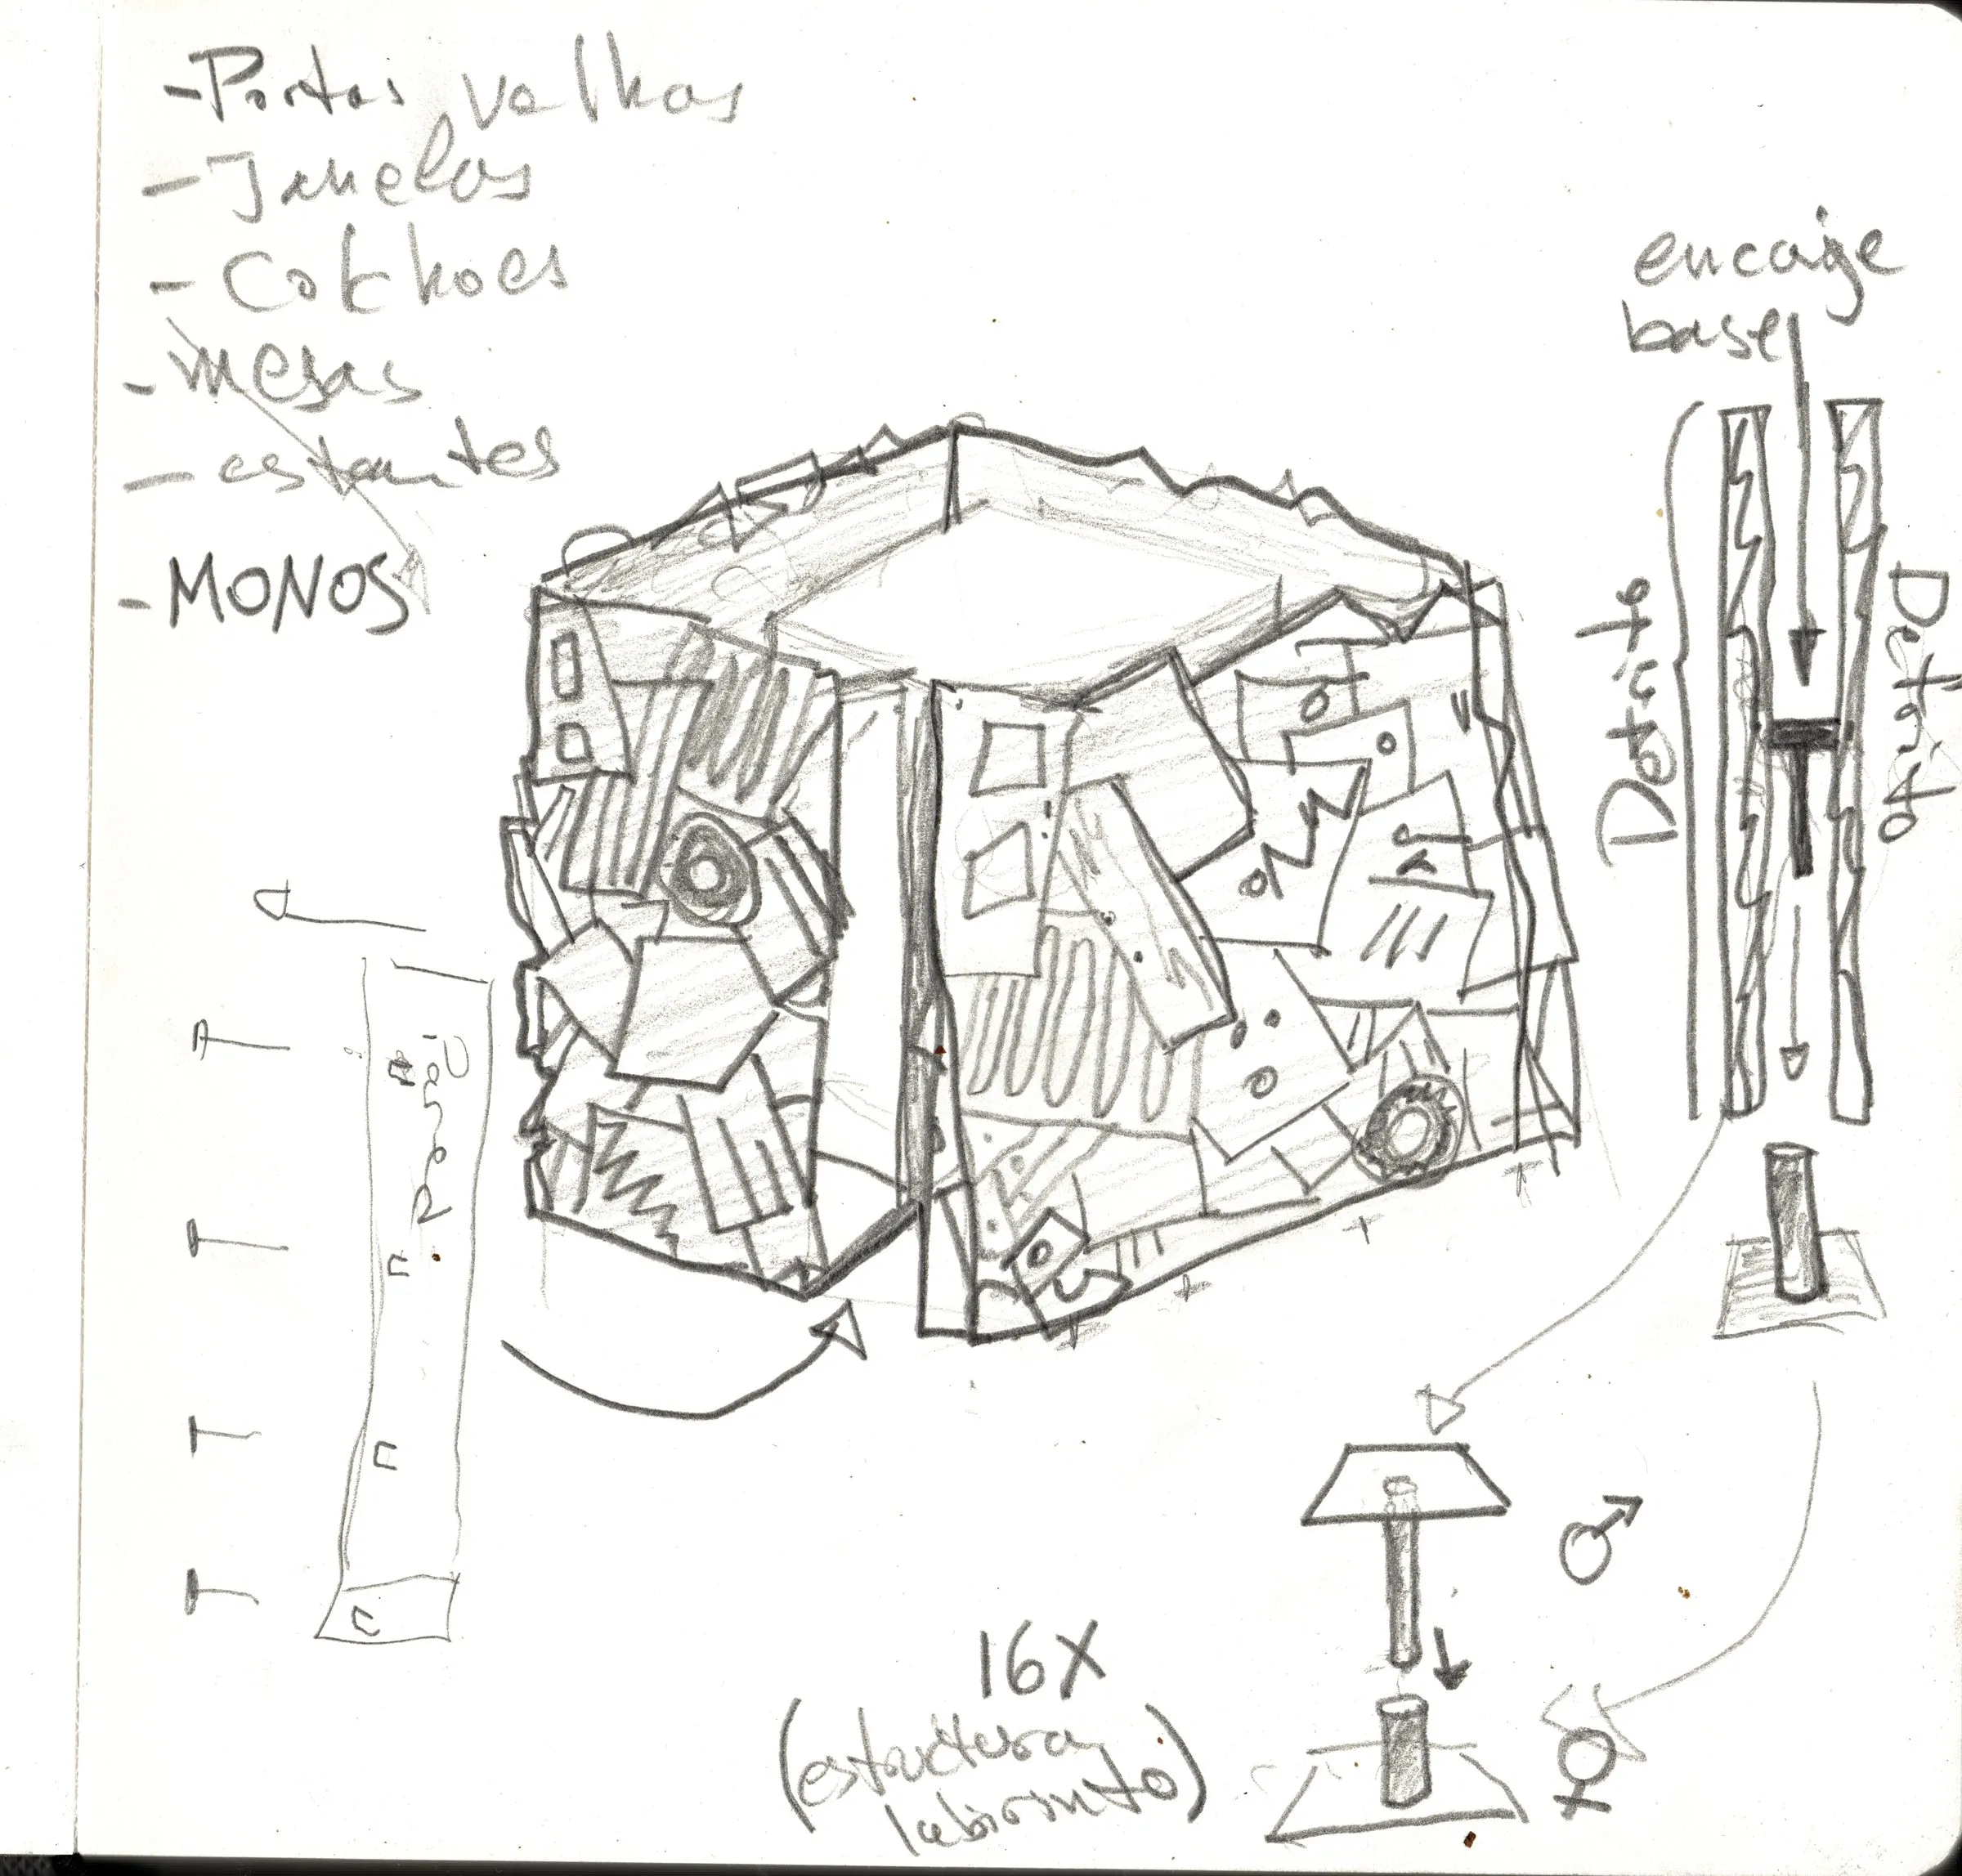 - Portas velhas
- Janelas
- Colchoes
- mesas
- estantes
- MONOS
encaije
base
Detrito
Detrito
Painel
16X
(estructura
labirinto)